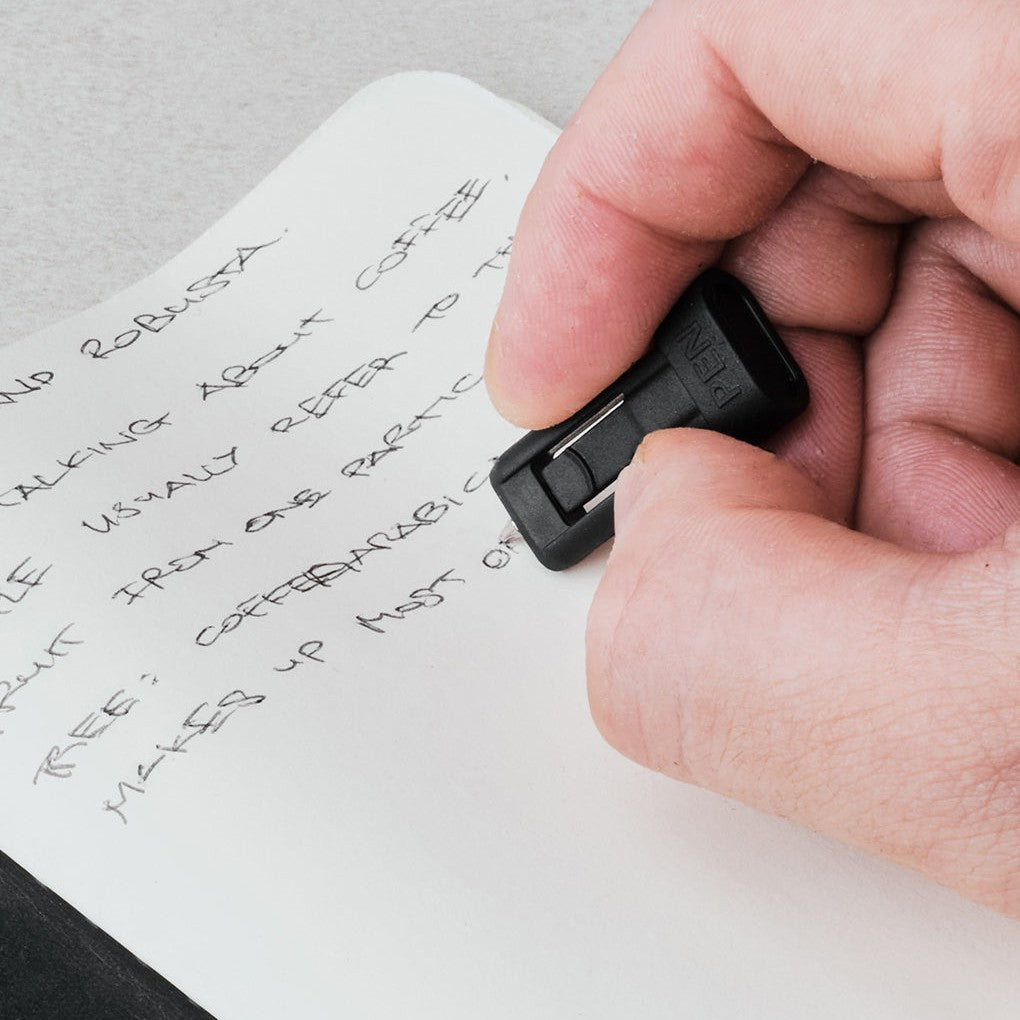 ND ROBUSTA.
TALKING ABOUT COFFEE.
LE USUALLY REFER TO TH
RUIT FROM ONE PARTIC
TREE: COFFEA ARABIC
MAKES UP MOST O
PEN